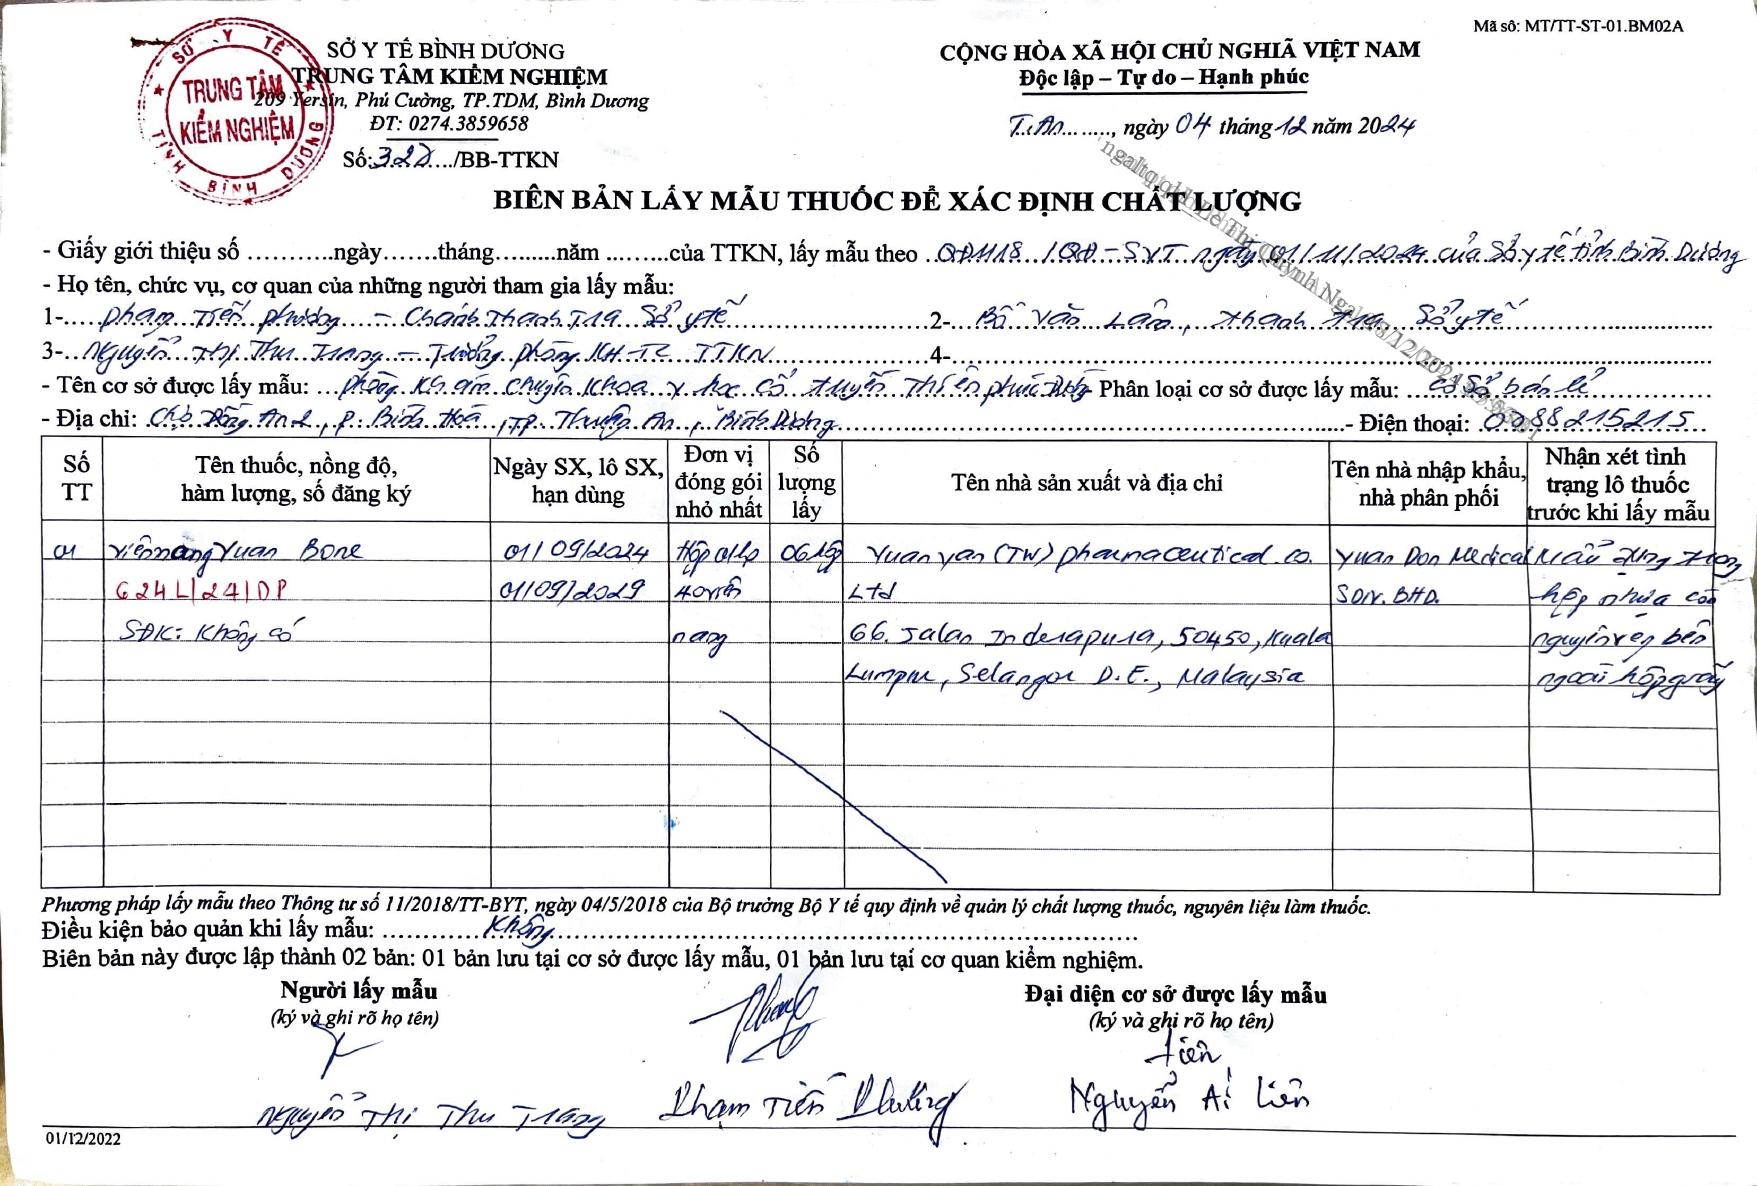 Mã số: MT/TT-ST-01.BM02A
SỞ Y TẾ BÌNH DƯƠNG
TRUNG TÂM KIỂM NGHIỆM
209 Yersin, Phú Cường, TP.TDM, Bình Dương
ĐT: 0274.3859658
Số: 322/BB-TTKN
SỞ Y TẾ
TRUNG TÂM
KIỂM NGHIỆM
TỈNH BÌNH DƯƠNG
CỘNG HÒA XÃ HỘI CHỦ NGHĨA VIỆT NAM
Độc lập – Tự do – Hạnh phúc
T.An........, ngày 04 tháng 12 năm 2024
BIÊN BẢN LẤY MẪU THUỐC ĐỂ XÁC ĐỊNH CHẤT LƯỢNG
- Giấy giới thiệu số ...........ngày.......tháng.........năm .........của TTKN, lấy mẫu theo QĐ1118/QĐ-SYT ngày 01/11/2024 của Sở y tế tỉnh Bình Dương
- Họ tên, chức vụ, cơ quan của những người tham gia lấy mẫu:
1- Phạm Tiến Phương – Chánh Thanh Tra Sở y tế 2- Bồ Văn Lâm, thanh tra Sở y tế
3- Nguyễn Thị Thu Trang – Trưởng phòng KH-TC TTKN 4-
- Tên cơ sở được lấy mẫu: phòng khám chuyên khoa y học cổ truyền Thiên phúc Đường Phân loại cơ sở được lấy mẫu: cơ sở bán lẻ
- Địa chỉ: Chợ Đồng An 2, P. Bình Hoà, TP. Thuận An, Bình Dương - Điện thoại: 0988215215
Số TT
Tên thuốc, nồng độ, hàm lượng, số đăng ký
Ngày SX, lô SX, hạn dùng
Đơn vị đóng gói nhỏ nhất
Số lượng lấy
Tên nhà sản xuất và địa chỉ
Tên nhà nhập khẩu, nhà phân phối
Nhận xét tình trạng lô thuốc trước khi lấy mẫu
01 Viên nang Yuan Bone 01/09/2024 Hộp 06 hộp Yuan yan (TW) pharmaceutical Co. Yuan Don Medical Mẫu đựng trong
624L/24/DP 01/09/2029 40 viên Ltd SDN. BHD. hộp nhựa còn
SĐK: Không có nang 66. Jalan Inderapura, 50450, Kuala nguyên vẹn bên
Lumpur, Selangor D.E., Malaysia ngoài hộp giấy
Phương pháp lấy mẫu theo Thông tư số 11/2018/TT-BYT, ngày 04/5/2018 của Bộ trưởng Bộ Y tế quy định về quản lý chất lượng thuốc, nguyên liệu làm thuốc.
Điều kiện bảo quản khi lấy mẫu: Không
Biên bản này được lập thành 02 bản: 01 bản lưu tại cơ sở được lấy mẫu, 01 bản lưu tại cơ quan kiểm nghiệm.
Người lấy mẫu
(ký và ghi rõ họ tên)
Đại diện cơ sở được lấy mẫu
(ký và ghi rõ họ tên)
liên
Nguyễn Thị Thu Trang
Phạm Tiến Phương
Nguyễn Ái Liên
01/12/2022